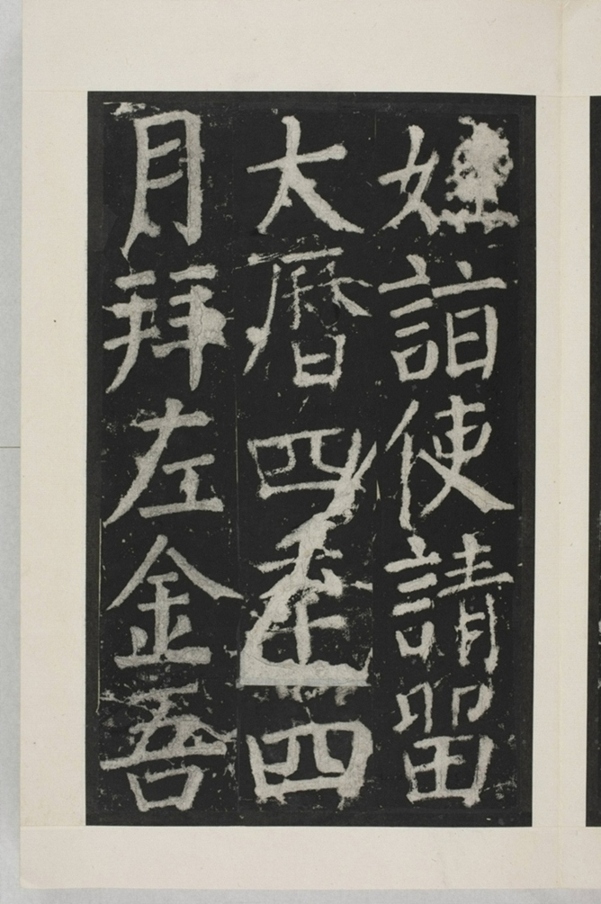 姓詣使請留
大曆四年四
月拜左金吾